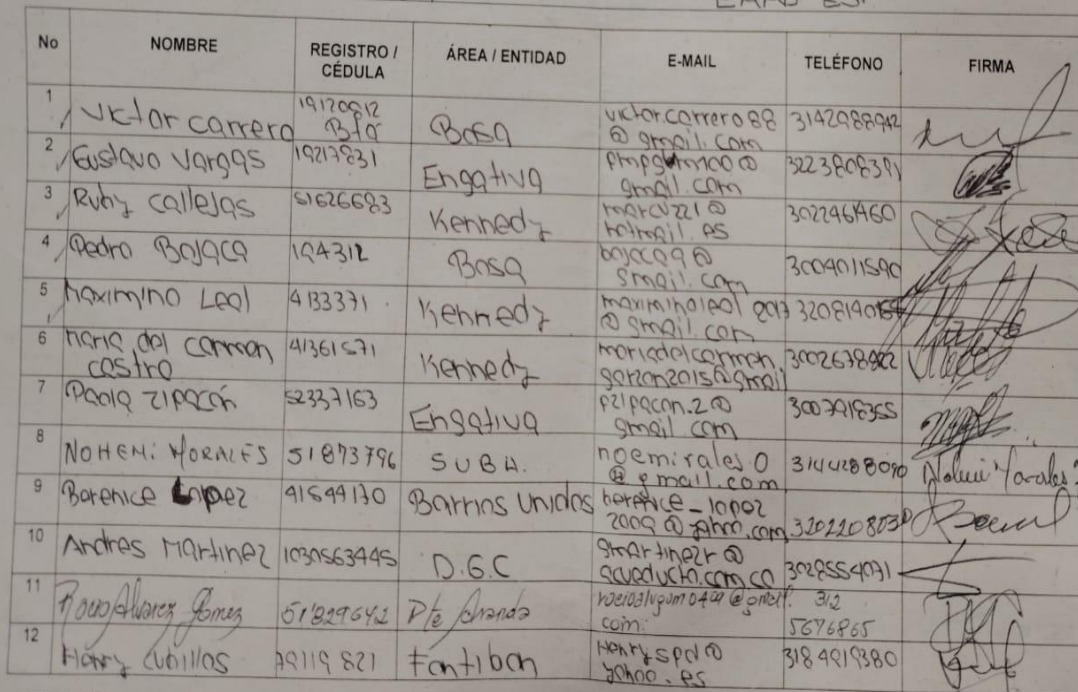 No NOMBRE REGISTRO / CÉDULA ÁREA / ENTIDAD E-MAIL TELÉFONO FIRMA
1 Victor carrero 19120912 Bta Bosa victor.carrero88 @ gmail.com 3142988942
2 Gustavo Vargas 19217831 Engativa gmail.com 3223808391
3 Ruby callejas 51626683 Kennedy marcuzzi@ hotmail.es 3022461460
4 Pedro Bojaca 194312 Bosa bojaca9@ gmail.com 3004011590
5 Maximino Leal 4133371 Kennedy maximinoleal 2017 @ gmail.com
6 Maria del carmen castro 41361571 Kennedy mariadelcarmen garzon2015@gmail
7 Paola zipacón 52337163 Engativa pzipacon.2@ gmail com 3007918355
8 NOHEMI MORALES 51873796 SUBA. noemirales0 @gmail.com 3144288090 Nohemi Morales
9 Berenice Lopez 41544170 Barrios Unidos berenice_lopez 2009@yahoo.com
10 Andres Martinez 1030563445 D.G.C gmartinezr@ acueducto.com.co 3028554091
11 Rocio Alvarez Gómez 51829642 Pte Aranda com. 312 5676865
12 Henry Cubillos 79119821 Fontibon Henryspd@ yahoo.es 3184919380